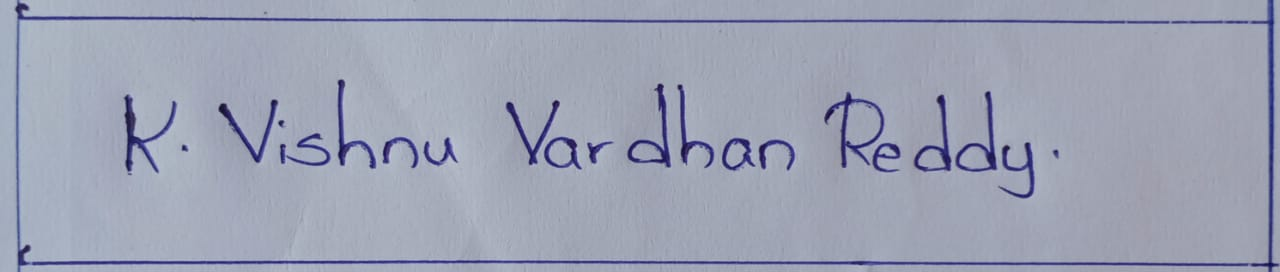 K. Vishnu Vardhan Reddy.